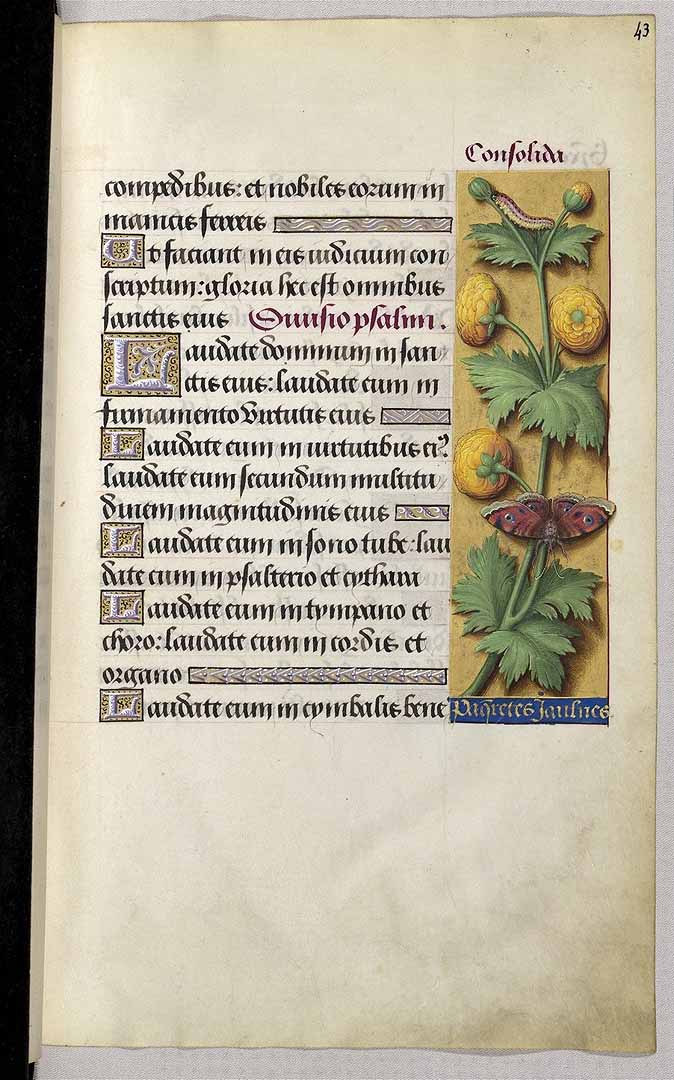 43
Consolida
compedibus: et nobiles eorum in
manicis ferreis
Ut faciant in eis iudicium con
scriptum: gloria hec est omnibus
sanctis eius Divisio psalm.
Laudate dominum in san
ctis eius: laudate eum in
firmamento virtutis eius
Laudate eum in virtutibus eiꝰ:
laudate eum secundum multitu
dinem magnitudinis eius
Laudate eum in sono tube: lau
date eum in psalterio et cythara
Laudate eum in tympano et
choro: laudate eum in cordis et
organo
Laudate eum in cymbalis bene
Paqretes Jaulnes